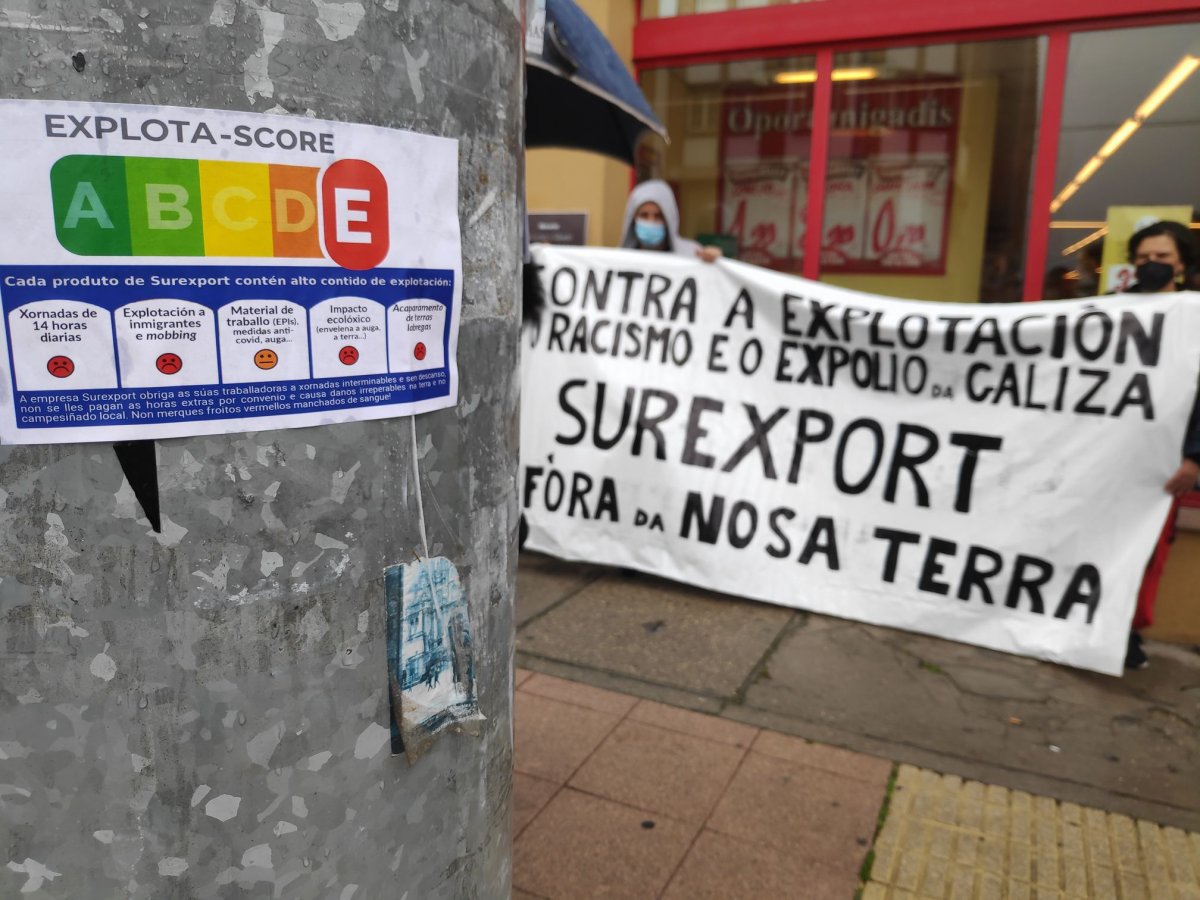 EXPLOTA-SCORE
A B C D E
Cada produto de Surexport contén alto contido de explotación:
Xornadas de
14 horas
diarias
Explotación a
inmigrantes
e mobbing
Material de
traballo (EPIs),
medidas anti-
covid, auga...
Impacto
ecolóxico
(envelena a auga,
a terra...)
Acaparamento
de terras
labregas
A empresa Surexport obriga as súas traballadoras a xornadas interminables e sen descanso,
non se lles pagan as horas extras por convenio e causa danos irreperables na terra e no
campesiñado local. Non merques froitos vermellos manchados de sangue!
Oportunigadis
CONTRA A EXPLOTACIÓN
O RACISMO E O EXPOLIO DA GALIZA
SUREXPORT
FÓRA DA NOSA TERRA